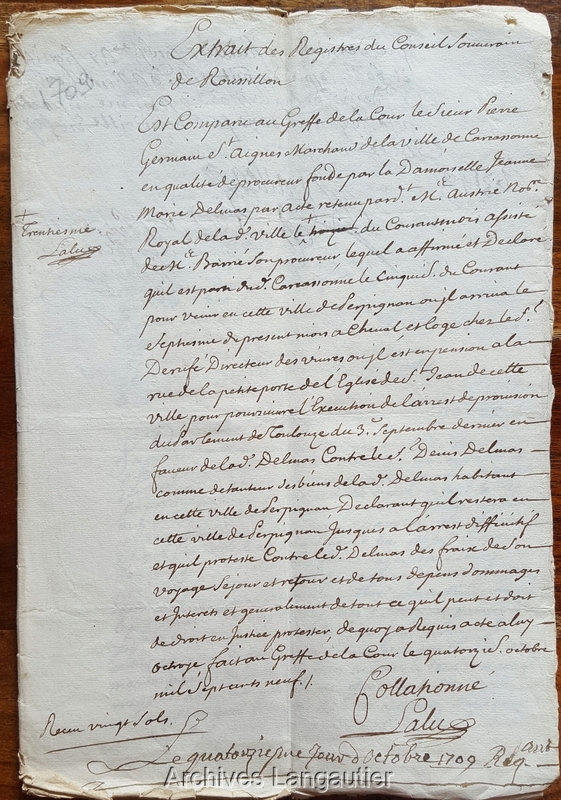 1709
Extrait des Registres du Conseil Souverain
de Roussillon
Est Comparu au Greffe de la Cour le Sieur Pierre
Germain St. Aignes Marchand de la ville de Carcassonne
en qualité de procureur fondé par la Damoiselle Jeanne
Marie Delmas par acte retenu par dt. Me. Austrie Nore.
Royal de lad. ville le du Courant mois assisté
de Me. Barrié Son procureur lequel a affirmé et Declaré
quil est parti dud. Carcassonne le Cinquie. du Courant
pour venir en cette ville de Perpignan ou jl arriva le
Septiesme du present mois a Cheval et loge chez le Sr.
Directeur des vivres ou jl est en pension a la
rue de la petite porte de l'Eglise de St. Jean de cette
ville pour poursuivre l'Execution de l'arrest de provision
du Parlement de Toulouze du 3e. Septembre dernier en
faveur de lad. Delmas Contre le Sr. Denis Delmas
comme detanteur des biens de lad. Delmas habitant
en cette ville de Perpignan Declarant quil restera en
cette ville de Perpignan Jusques a l'arrest diffinitif
et quil proteste Contre led. Delmas des fraix de Son
voyage Sejour et retour et de tous depens dommages
et Interets et generalement de tout ce quil peut et doit
de droit en Justice protester, de quoy a Requis acte a luy
octroyé fait au Greffe de la Cour le quatorzie. octobre
mil Sept cents neuf ./.
+
Trentiesme
Lalu
Collationné
Lalu
Receu vingt Sols.
Le quatorziesme Jour d'Octobre 1709
Archives Langautier